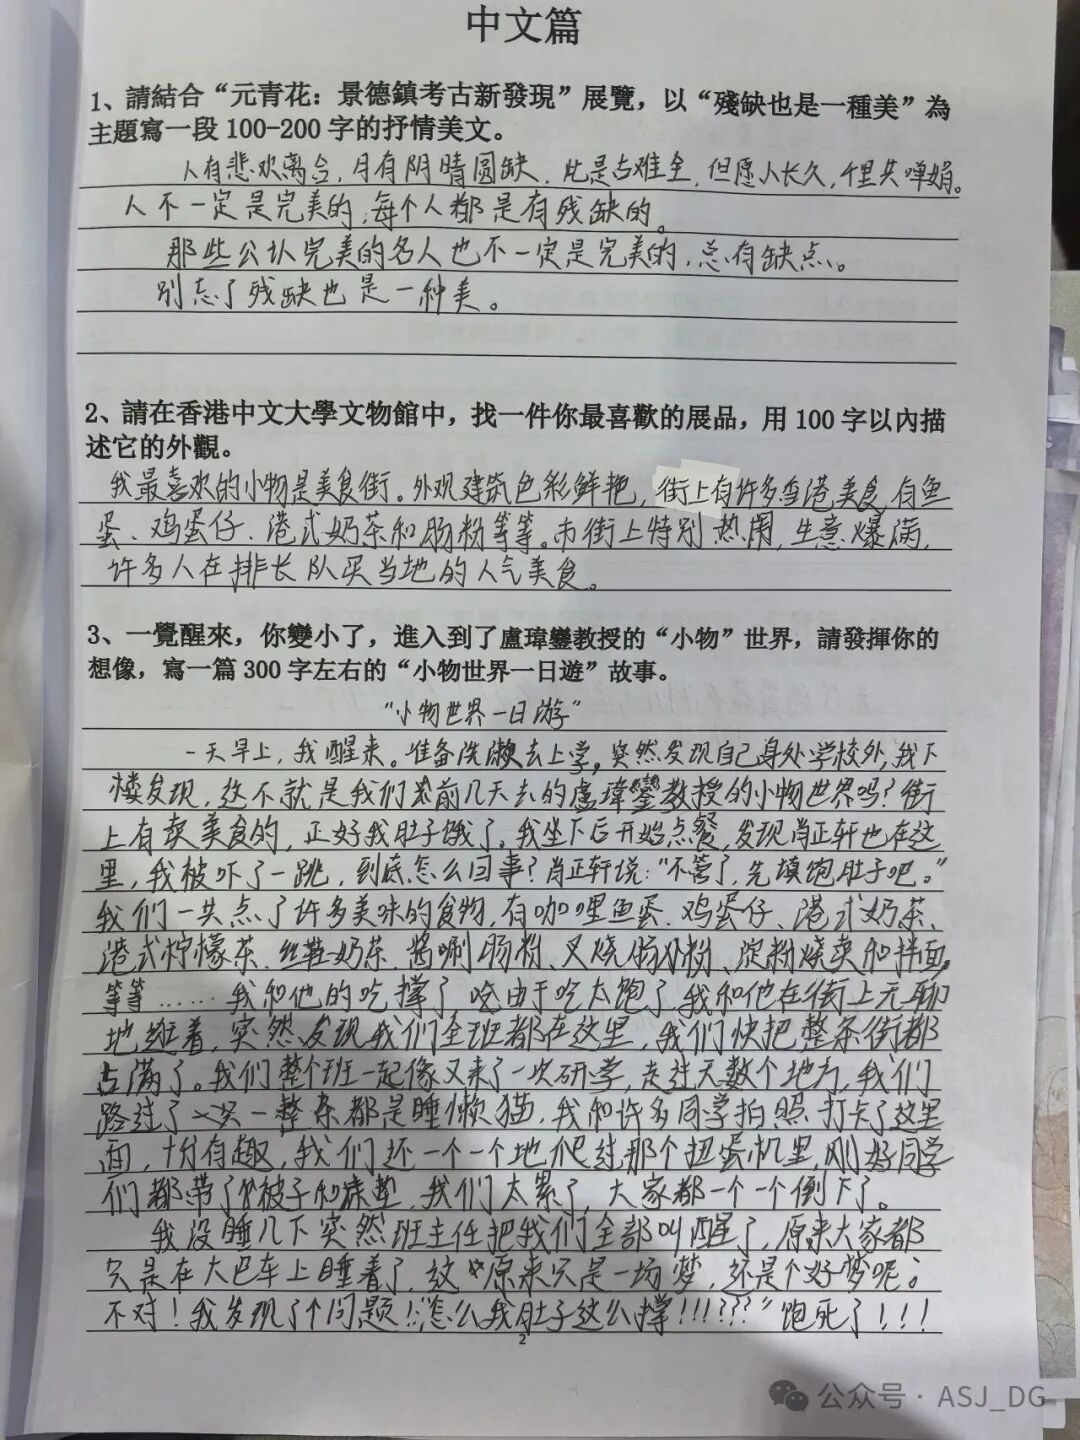 中文篇
1、請結合“元青花：景德鎮考古新發現”展覽，以“殘缺也是一種美”為
主題寫一段 100-200 字的抒情美文。
人有悲欢离合，月有阴晴圆缺，此是古难全，但愿人长久，千里共婵娟。
人不一定是完美的，每个人都是有残缺的。
那些公认完美的名人也不一定是完美的，总有缺点。
别忘了残缺也是一种美。
2、請在香港中文大學文物館中，找一件你最喜歡的展品，用 100 字以內描
述它的外觀。
我最喜欢的小物是美食街。外观建筑色彩鲜艳，街上有许多香港美食，有鱼
蛋、鸡蛋仔、港式奶茶和肠粉等等。市街上特别热闹，生意爆满，
许多人在排长队买当地的人气美食。
3、一覺醒來，你變小了，進入到了盧瑋鑾教授的“小物”世界，請發揮你的
想像，寫一篇 300 字左右的“小物世界一日遊”故事。
“小物世界一日游”
一天早上，我醒来。准备洗漱去上学，突然发现自己身处学校外，我下
楼发现，这不就是我们前几天去的盧瑋鑾教授的小物世界吗？街
上有卖美食的，正好我肚子饿了。我坐下后开始点餐，发现肖正轩也在这
里，我被吓了一跳，到底怎么回事？肖正轩说：“不管了，先填饱肚子吧。”
我们一共点了许多美味的食物，有咖哩鱼蛋、鸡蛋仔、港式奶茶、
港式柠檬茶、丝鞋奶茶、肠粉、叉烧肠粉、淀粉烧卖和拌面，
等等……我和他的吃撑了 由于吃太饱了，我和他在街上无聊
地逛着，突然发现我们全班都在这里，我们快把整条街都
占满了。我们整个班一起像又来了一次研学，走过无数个地方，我们
路过了一整条都是睡懒猫，我和许多同学拍照打卡了这里
面，十分有趣，我们还一个一个地爬过那个扭蛋机里，刚好同学
们都带了被子和床垫，我们太累了，大家都一个一个倒下了。
我没睡几下突然班主任把我们全部叫醒了，原来大家都
只是在大巴车上睡着了，这原来只是一场梦，还是个好梦呢。
不对！我发现了个问题！“怎么我肚子这么撑！！！？？？”饱死了！！！
2
公众号·ASJ_DG